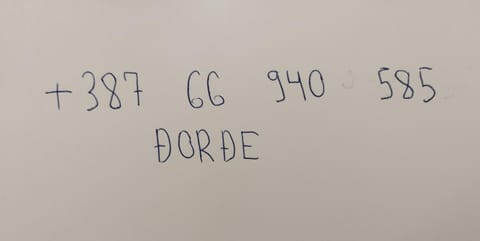 +387 66 940 585
ĐORĐE